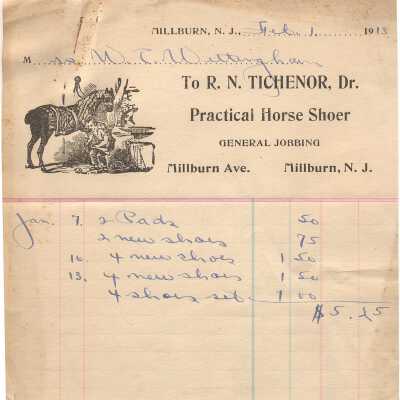 MILLBURN, N. J., Feb. 1 1913
Mrs W. T. Wittingham
To R. N. TICHENOR, Dr.
Practical Horse Shoer
GENERAL JOBBING
Millburn Ave. Millburn, N. J.
Jan. 7. 2 Pads 50
2 new shoes 75
10. 4 new shoes 1 50
13. 4 new shoes 1 50
4 shoes set 1 00
$5.25